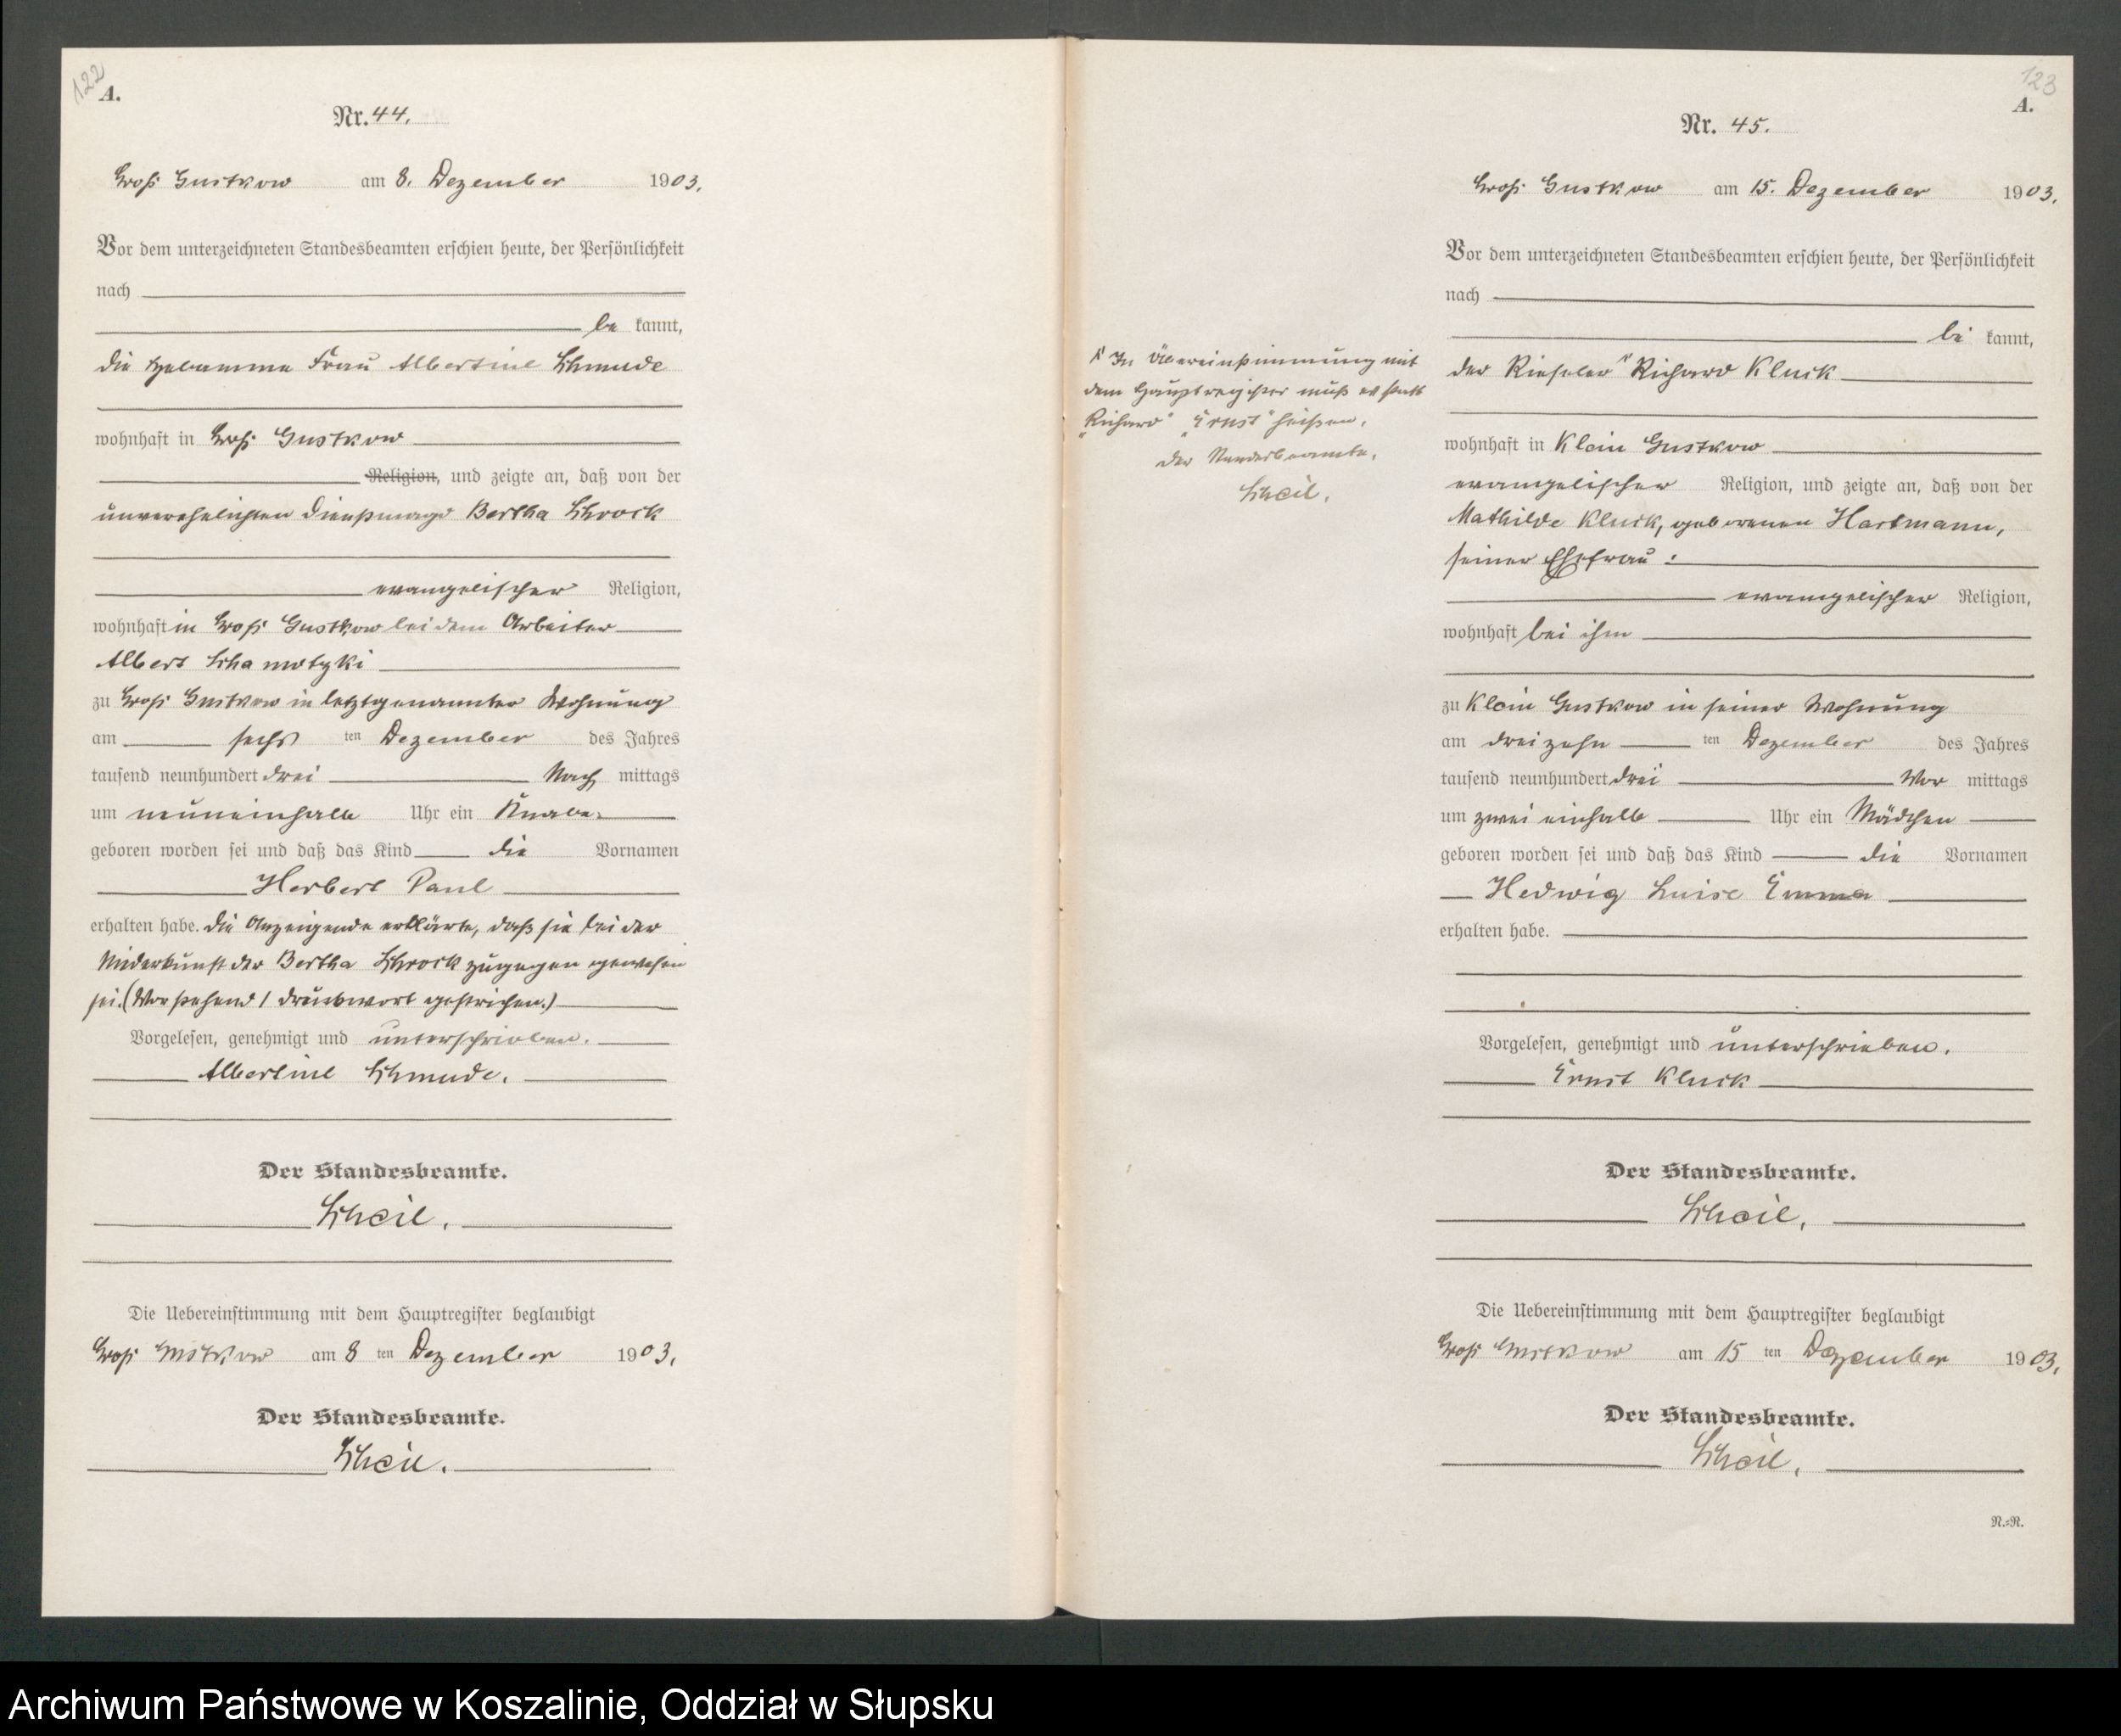 122
A.
Nr. 44.
Groß Gustkow am 8. Dezember 1903.
Vor dem unterzeichneten Standesbeamten erschien heute, der Persönlichkeit
nach
be kannt,
die Hebamme Frau Albertine Schmude
wohnhaft in Groß Gustkow
Religion, und zeigte an, daß von der
unverehelichten Dienstmagd Bertha Schrock
evangelischer Religion,
wohnhaft in Groß Gustkow bei dem Arbeiter
Albert Schamotzki
zu Groß Gustkow in letztgenannter Wohnung
am sechs ten Dezember des Jahres
tausend neunhundert drei Nach mittags
um neuneinhalb Uhr ein Knabe
geboren worden sei und daß das Kind die Vornamen
Herbert Paul
erhalten habe. Die Anzeigende erklärte, daß sie bei der
Niederkunft der Bertha Schrock zugegen gewesen
sei. (Vorstehend 1 Druckwort gestrichen.)
Vorgelesen, genehmigt und unterschrieben.
Albertine Schmude.
Der Standesbeamte.
Scheil.
Die Uebereinstimmung mit dem Hauptregister beglaubigt
Groß Gustkow am 8 ten Dezember 1903.
Der Standesbeamte.
Scheil.
123
A.
Nr. 45.
Groß Gustkow am 15. Dezember 1903.
Vor dem unterzeichneten Standesbeamten erschien heute, der Persönlichkeit
nach
be kannt,
der Rieseler Richard Kluck
wohnhaft in Klein Gustkow
evangelischer Religion, und zeigte an, daß von der
Mathilde Kluck, geborenen Hartmann,
seiner Ehefrau:
evangelischer Religion,
wohnhaft bei ihm
zu Klein Gustkow in seiner Wohnung
am dreizehn ten Dezember des Jahres
tausend neunhundert drei Vor mittags
um zwei einhalb Uhr ein Mädchen
geboren worden sei und daß das Kind die Vornamen
Hedwig Luise Emma
erhalten habe.
Vorgelesen, genehmigt und unterschrieben.
Ernst Kluck
Der Standesbeamte.
Scheil.
Die Uebereinstimmung mit dem Hauptregister beglaubigt
Groß Gustkow am 15 ten Dezember 1903.
Der Standesbeamte.
Scheil.
N.=N.
In Übereinstimmung mit
dem Hauptregister muß es statt
„Richard" „Ernst" heißen.
Der Standesbeamte.
Scheil.
Archiwum Państwowe w Koszalinie, Oddział w Słupsku